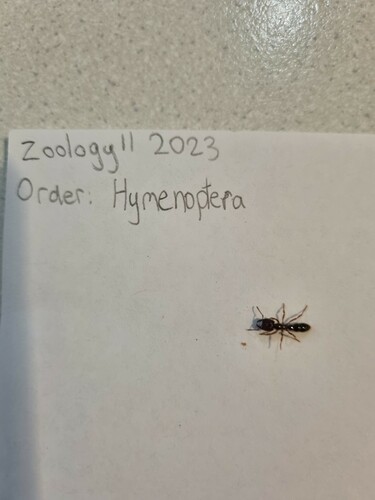 Zoology" 2023
Order: Hymenoptera